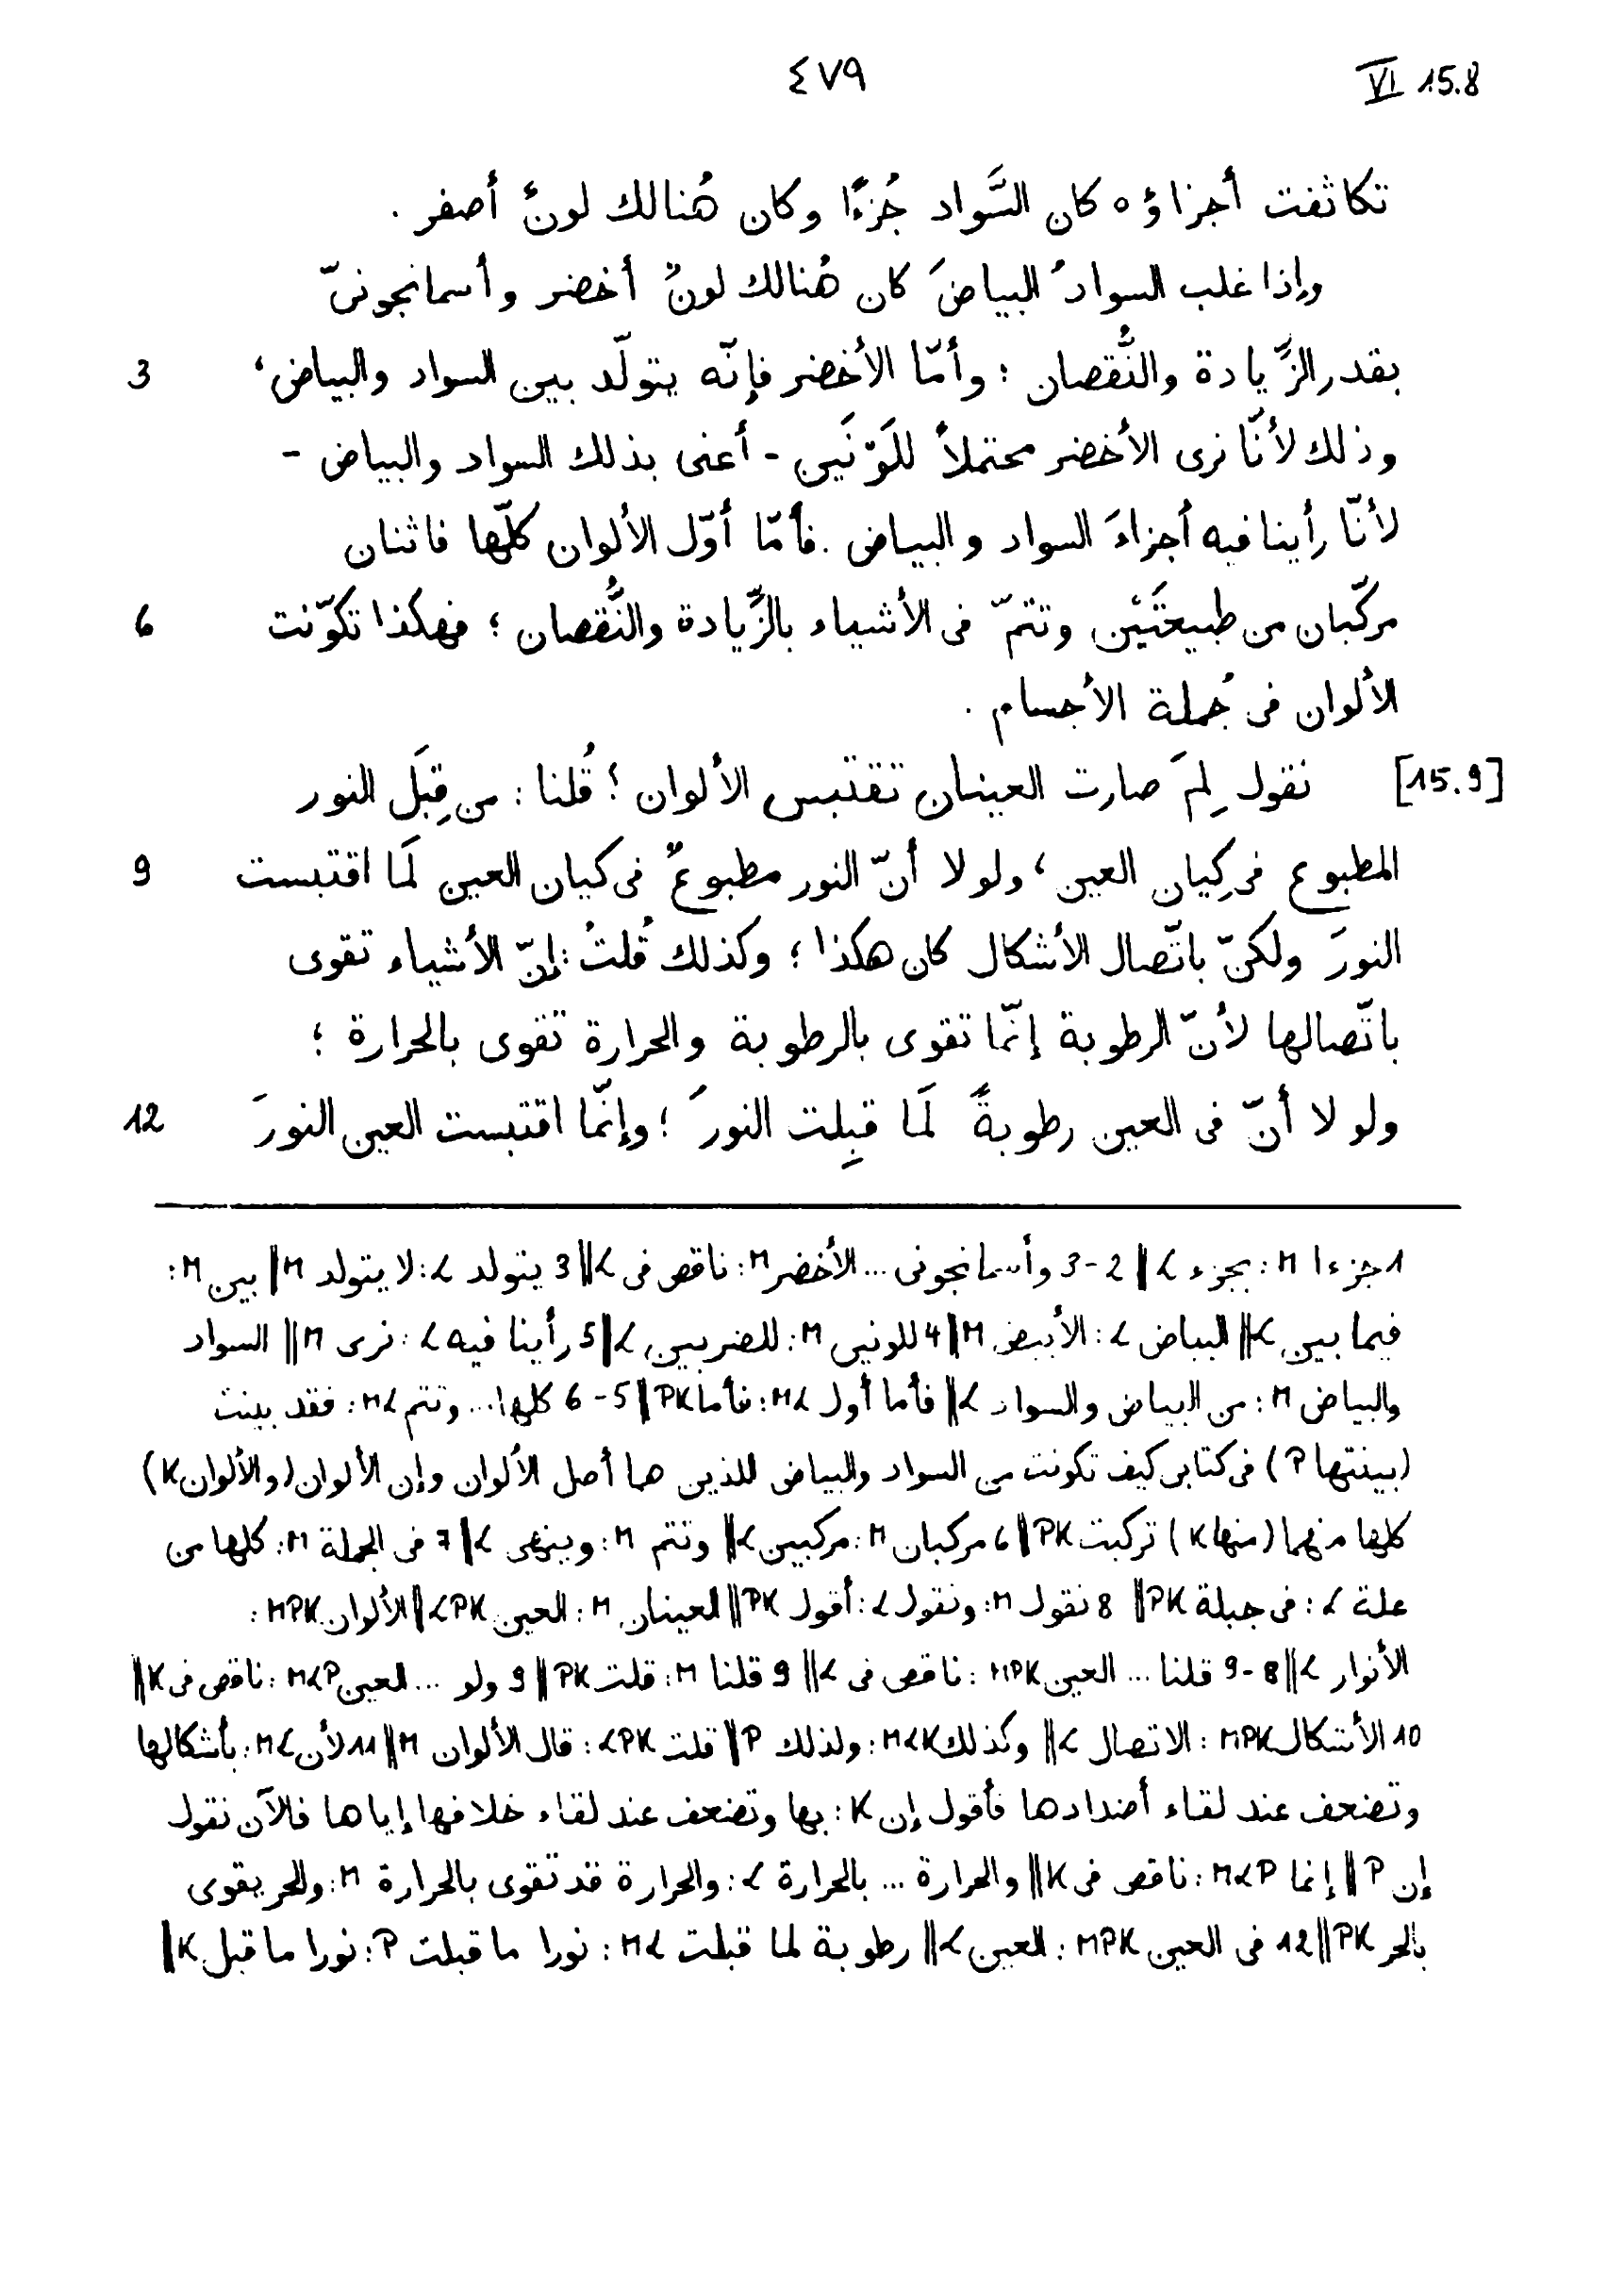 ٤٧٩
VI 15.8
تكاثفت أجزاؤه كان السَّواد جُزءًا وكان هُنالك لونٌ أصفر .
وإذا غلب السوادُ البياضَ كان هُنالك لونٌ أخضر وأسمانجونىّ
بقدر الزِّيادة والنُّقصان ؛ وأمّا الأخضر فإنّه يتولّد بين السواد والبياض، 3
وذلك لأنّا نرى الأخضر محتملاً للَوْنَين - أعنى بذلك السواد والبياض -
لأنّا رأينا فيه أجزاءَ السواد والبياض . فأمّا أوّل الألوان كلّها فاثنان
مركّبان من طبيعتَيْن وتتمّ فى الأشياء بالزِّيادة والنُّقصان ؛ فهكذا تكوّنت 6
الألوان فى جُملة الأجسام .
[15.9] نقول لِمَ صارت العينان تقتبس الألوان ؟ قُلنا : من قِبَل النور
المطبوع فى كِيان العين ، ولولا أنّ النور مطبوعٌ فى كيان العين لَما اقتبست 9
النورَ ولكنّ باتّصال الأشكال كان هكذا ؛ وكذلك قُلتُ : إنّ الأشياء تقوى
باتّصالها لأنّ الرطوبة إنّما تقوى بالرطوبة والحرارة تقوى بالحرارة ؛
ولولا أنّ فى العين رطوبةً لَما قبِلت النورَ ؛ وإنّما اقتبست العين النورَ 12
1 جزءا M : بجزء L ‖ 2-3 وأسمانجونى ... الأخضر M : ناقص فى L ‖ 3 يتولد L : لا يتولد M ‖ بين M :
فيما بين L ‖ البياض L : الأبيض M ‖ 4 للونين M : للضربين L ‖ 5 رأينا فيه L : نرى M ‖ السواد
والبياض M : من البياض والسواد L ‖ فأما أول ML : فأما PK ‖ 5-6 كلها ... وتتم ML : فقد بينت
(بينتها P) فى كتابى كيف تكونت من السواد والبياض للذين هما أصل الألوان وإن الألوان (والألوان K)
كلها منهما (منها K) تركبت PK ‖ 6 مركبان M : مركبين L ‖ وتتم M : وينهى L ‖ 7 فى الجملة M : كلها من
علة L : فى جبلة PK ‖ 8 نقول M : ونقول L : أقول PK ‖ العينان M : العين LPK ‖ الألوان MPK :
الأنوار L ‖ 8-9 قلنا ... العين MPK : ناقص فى L ‖ 9 قلنا M : قلت PK ‖ 9 ولو ... العين MLP : ناقص فى K ‖
10 الأشكال MPK : الاتصال L ‖ وكذلك MLK : ولذلك P ‖ قلت LPK : قال الألوان M ‖ 11 لأن ML : بأشكالها
وتضعف عند لقاء أضدادها فأقول إن K : بها وتضعف عند لقاء خلافها إياها فالآن نقول
إن P ‖ إنما MLP : ناقص فى K ‖ والحرارة ... بالحرارة L : والحرارة قد تقوى بالحرارة M : والحر يقوى
بالحر PK ‖ 12 فى العين MPK : العين L ‖ رطوبة لما قبلت ML : نورا ما قبلت P : نورا ما قبل K ‖